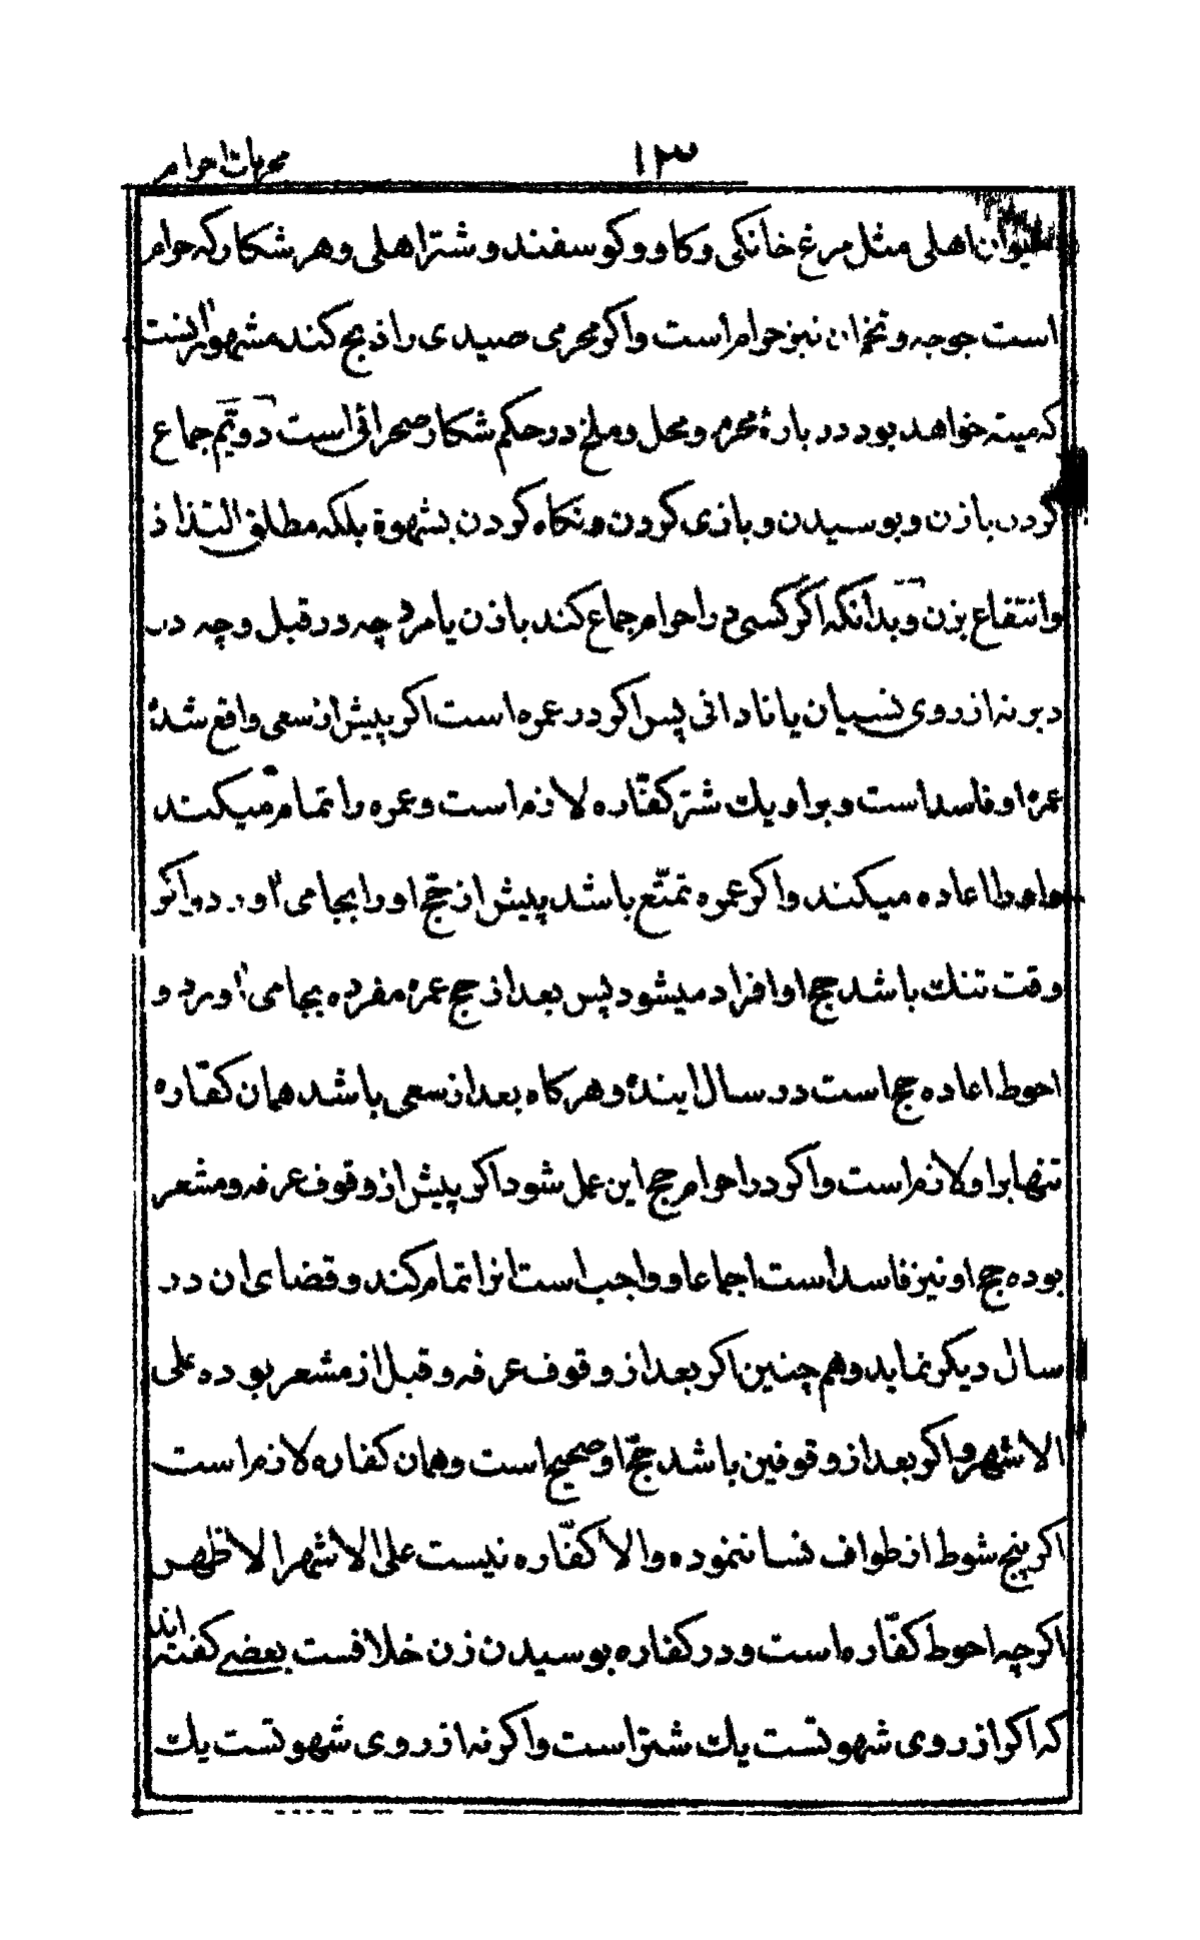 ۱۳
محرمات احرام
حیوان اهلی مثل مرغ خانکی و کاو و کوسفند و شتر اهلی و هر شکار که حرام
است جوجه و تخم ان نیز حرام است و اکر محرمی صیدی را ذبح کند مشهور انست
که میته خواهد بود در بارهٔ محرم و محل و ملخ در حکم شکار صحرائی است دویّم جماع
کردن با زن و بوسیدن و بازی کردن و نکاه کردن بشهوة بلکه مطلق التذاذ
و انتفاع بزن و بدانکه اکر کسی در احرام جماع کند با زن یا مرد چه در قبل و چه در
دبر نه از روی نسیان یا نادانی پس اکر در عمره است اکر پیش از سعی واقع شدهٔ
عمرهٔ او فاسد است و بر او یك شتر کفّاره لازم است و عمره را تمام میکند
اعاده میکند و اکر عمره تمتّع باشد پیش از حجّ او را بجا می اورد و اکر
وقت تنك باشد حج او افراد میشود پس بعد از حج عمرهٔ مفرده بجا می اورد و
احوط اعاده حج است در سال ایندهٔ و هرکاه بعد از سعی باشد همان کفّاره
تنها بر او لازم است و اکر در احرام حج این عمل شود اکر پیش از وقوف عرفه و مشعر
بوده حج او نیز فاسد است اجماعا و واجب است انرا تمام کند و قضای ان در
سال دیکر نماید و هم چنین اکر بعد از وقوف عرفه و قبل از مشعر بوده علی
الاشهر و اکر بعد از وقوفین باشد حجّ او صحیح است و همان کفاره لازم است
اکر پنج شوط از طواف نسا ننموده و الا کفّاره نیست علی الاشهر الاظهر
اکرچه احوط کفّاره است و در کفاره بوسیدن زن خلافست بعضی کفته اند
که اکر از روی شهوتست یك شتر است و اکر نه از روی شهوتست یك